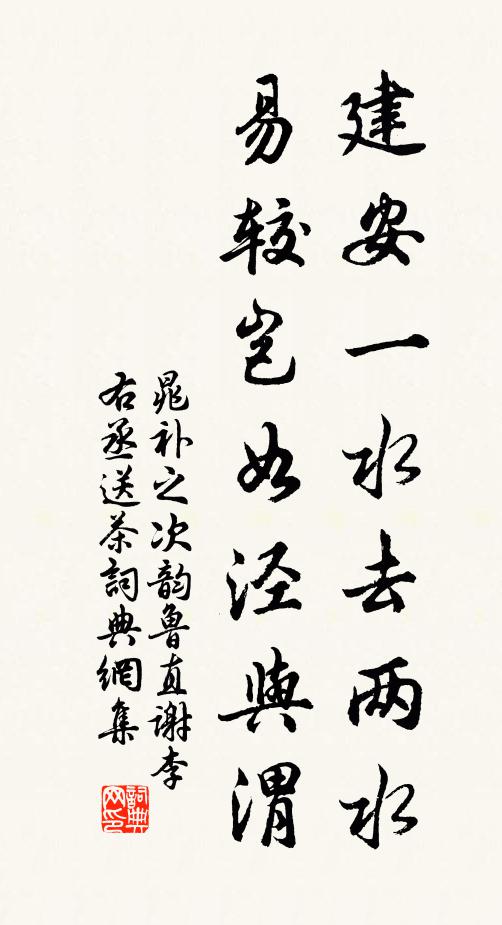 建安一水去两水
易较岂如泾與渭
晁补之次韵鲁直谢李
右丞送茶詞典網集
詞典网印